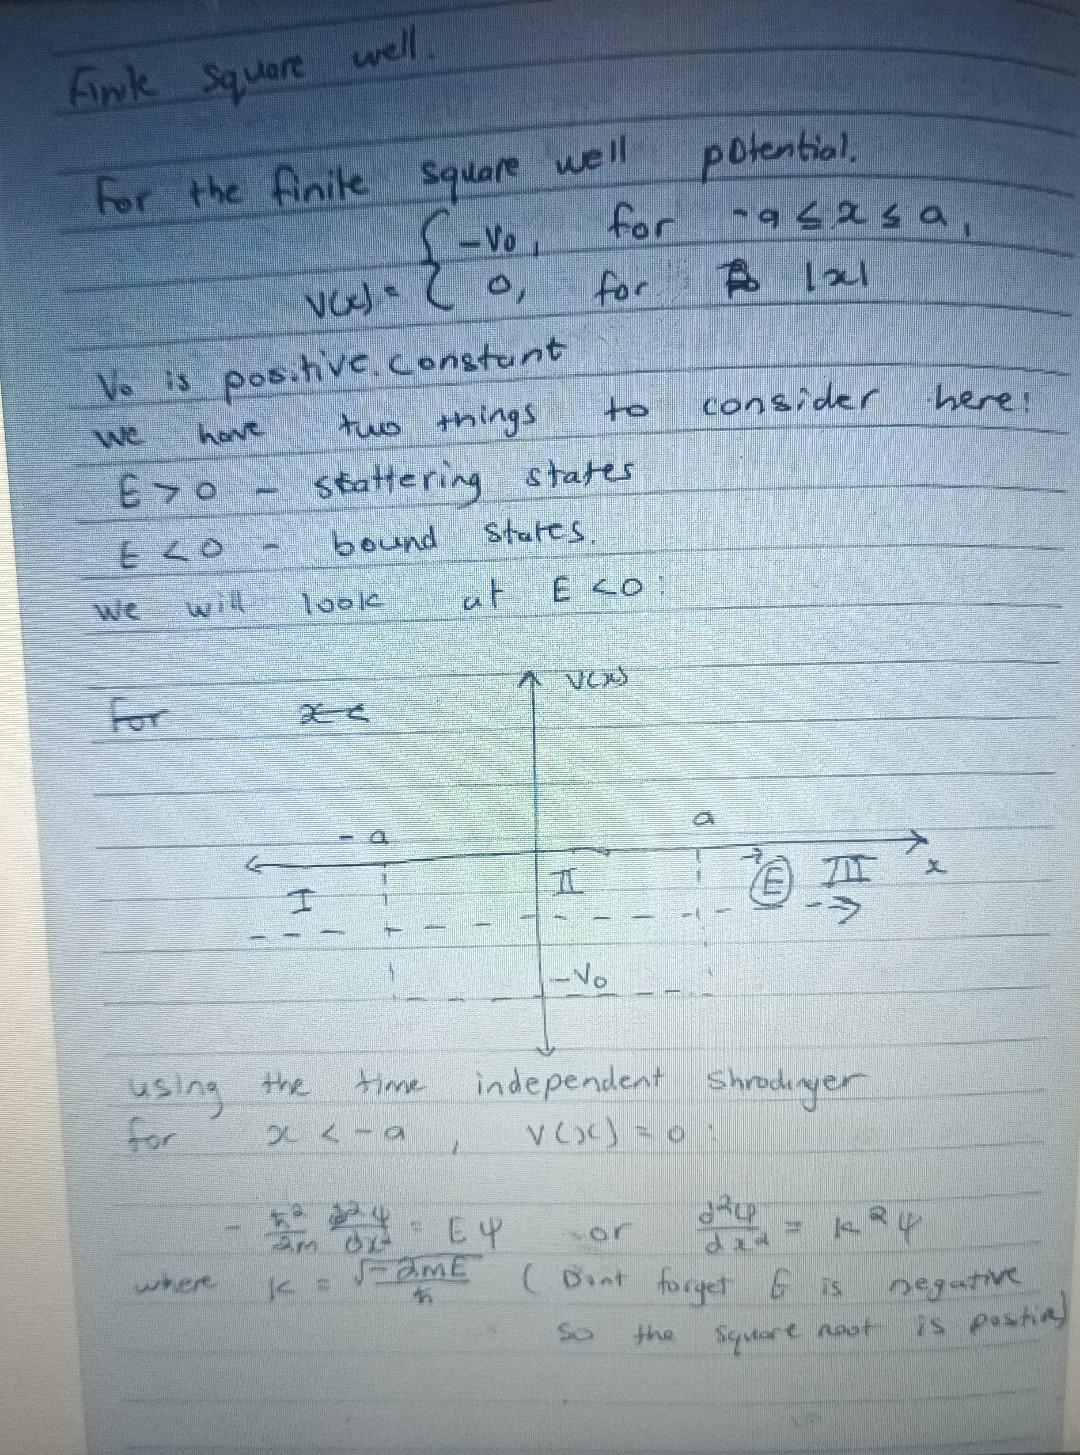 Finite square well.
For the finite square well potential.
V(x) = { -V₀, for -a ≤ x ≤ a,
0, for |x|
V₀ is positive. constant
we have two things to consider here:
E > 0 - scattering states
E < 0 - bound states.
we will look at E < 0:
V(x)
For x <
-a a
I II E III x
-V₀
using the time independent Shrodinger
for x < -a, V(x) = 0:
- ħ²/2m d²ψ/dx² = Eψ or d²ψ/dx² = k²ψ
where k = √-2mE/ħ (Dont forget E is negative
so the square root is positive)